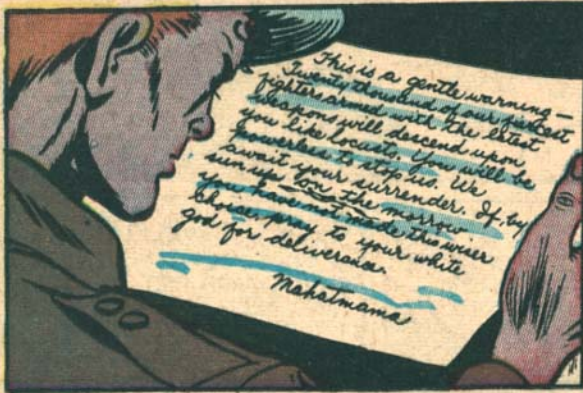 This is a gentle warning—
Twenty thousand of our fiercest
fighters armed with the latest
weapons will descend upon
you like locusts. You will be
powerless to stop us. We
await your surrender. If by
sun up on the morrow
you have not made this wiser
choice pray to your white
god for deliverance.
Mahatmama